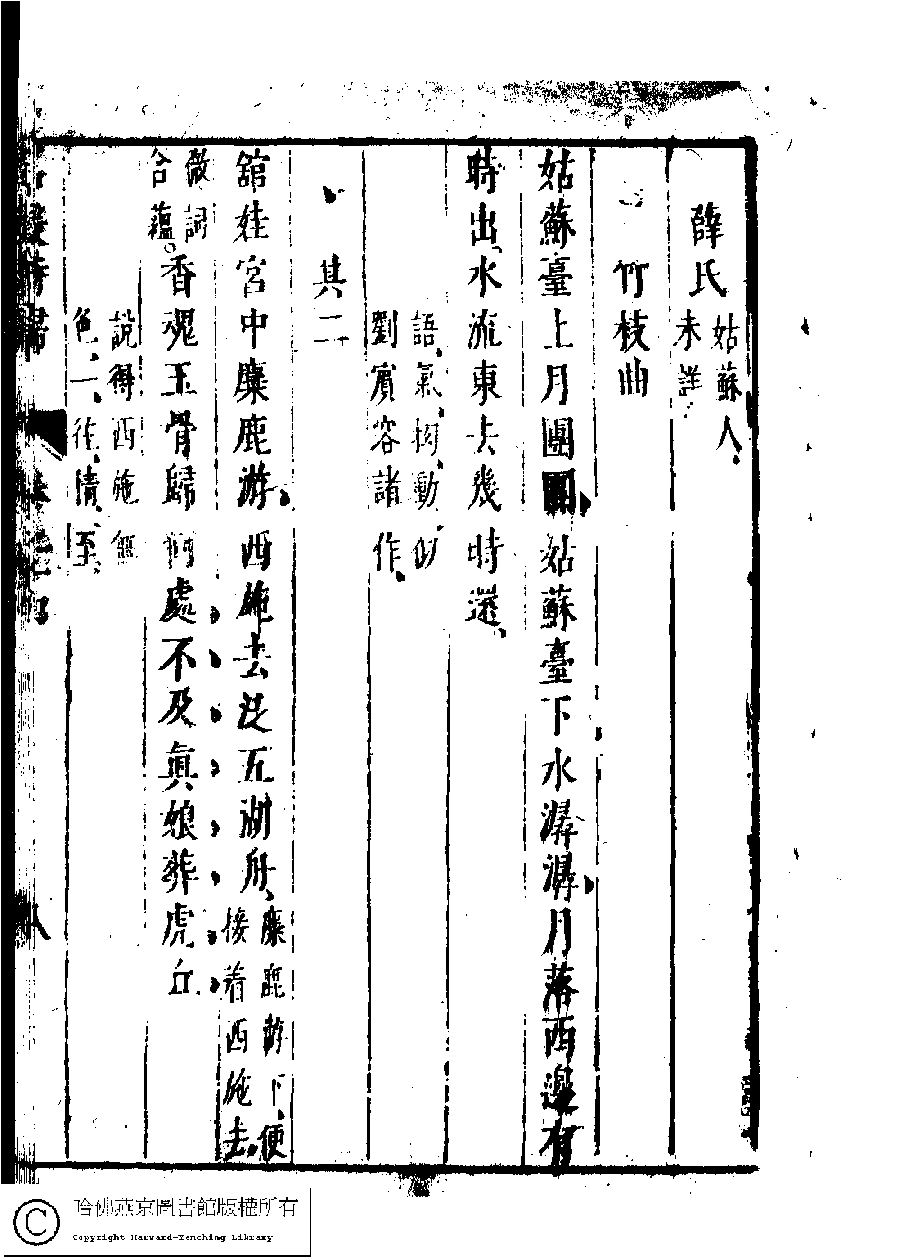 薛氏 姑蘇人
未詳
竹枝曲
姑蘇臺上月團團姑蘇臺下水潺潺月落西邊有
時出水流東去幾時還
語氣 動似
劉賓客諸作
其二
舘娃宮中麋鹿游西施去泛五湖舟 麋鹿游下便
接着西施去
微詞
含蘊 香魂玉骨歸何處不及真娘葬虎丘
說得西施無
色一往情至
名媛詩歸
八
哈佛燕京圖書館版權所有
Copyright Harvard-Yenching Library